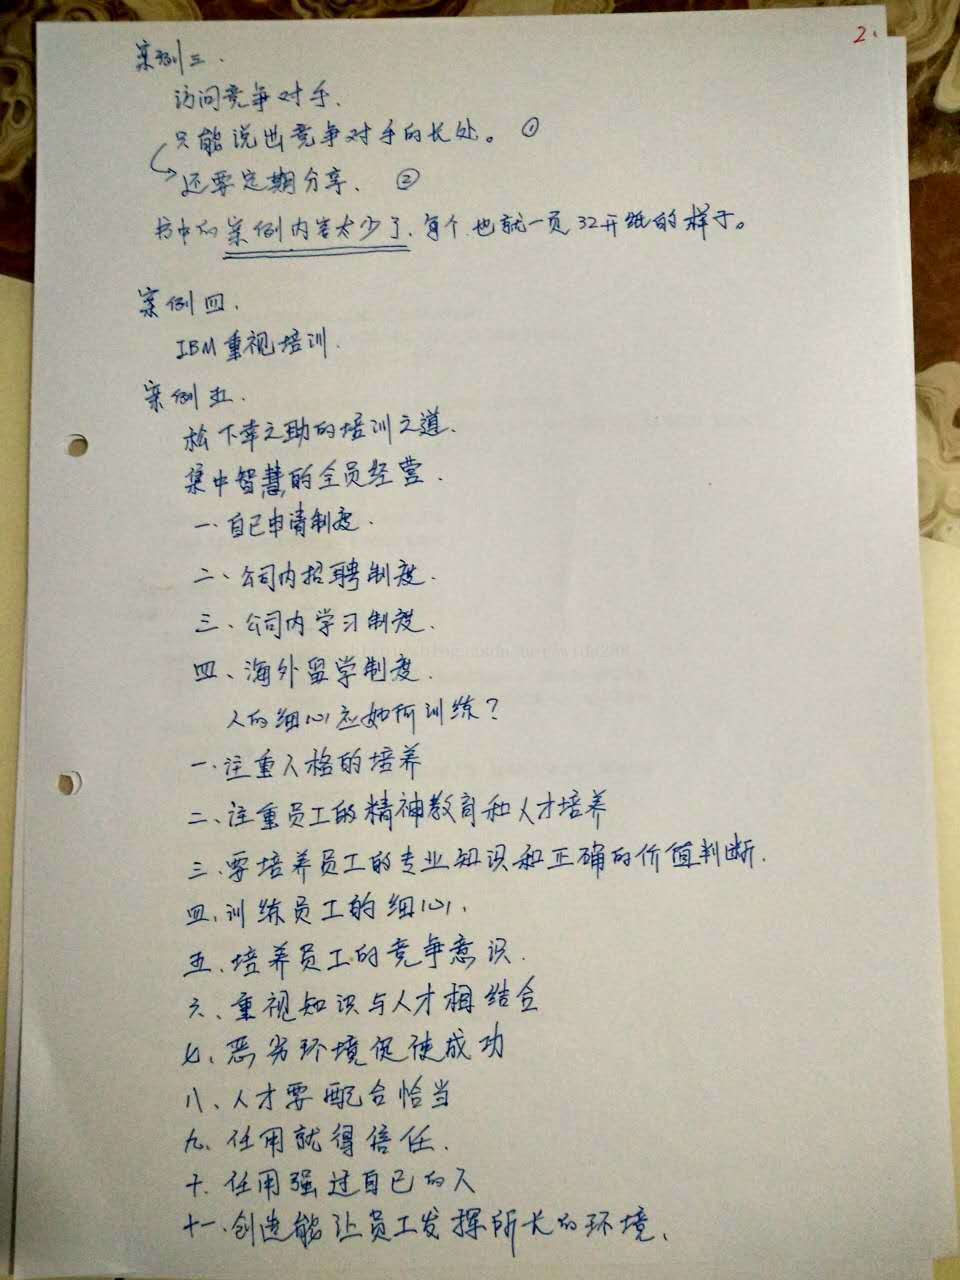 2.
案例三.
访问竞争对手.
只能说出竞争对手的长处。①
还要定期分享. ②
书中的案例内容太少了,每个也就一页32开纸的样子。
案例四.
IBM重视培训.
案例五.
松下幸之助的培训之道.
集中智慧的全员经营.
一、自己申请制度.
二、公司内招聘制度.
三、公司内学习制度.
四、海外留学制度.
人的细心应如何训练?
一.注重人格的培养
二、注重员工的精神教育和人才培养
三.要培养员工的专业知识和正确的价值判断.
四.训练员工的细心.
五.培养员工的竞争意识.
六、重视知识与人才相结合
七、恶劣环境促使成功
八、人才要配合恰当
九.任用就得信任.
十.任用强过自己的人
十一.创造能让员工发挥所长的环境.